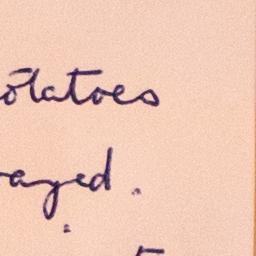 otatoes
ayed.